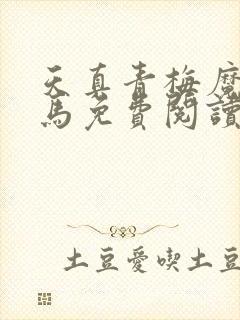 天真青梅魔
馬免費閱讀
土豆愛喫土豆